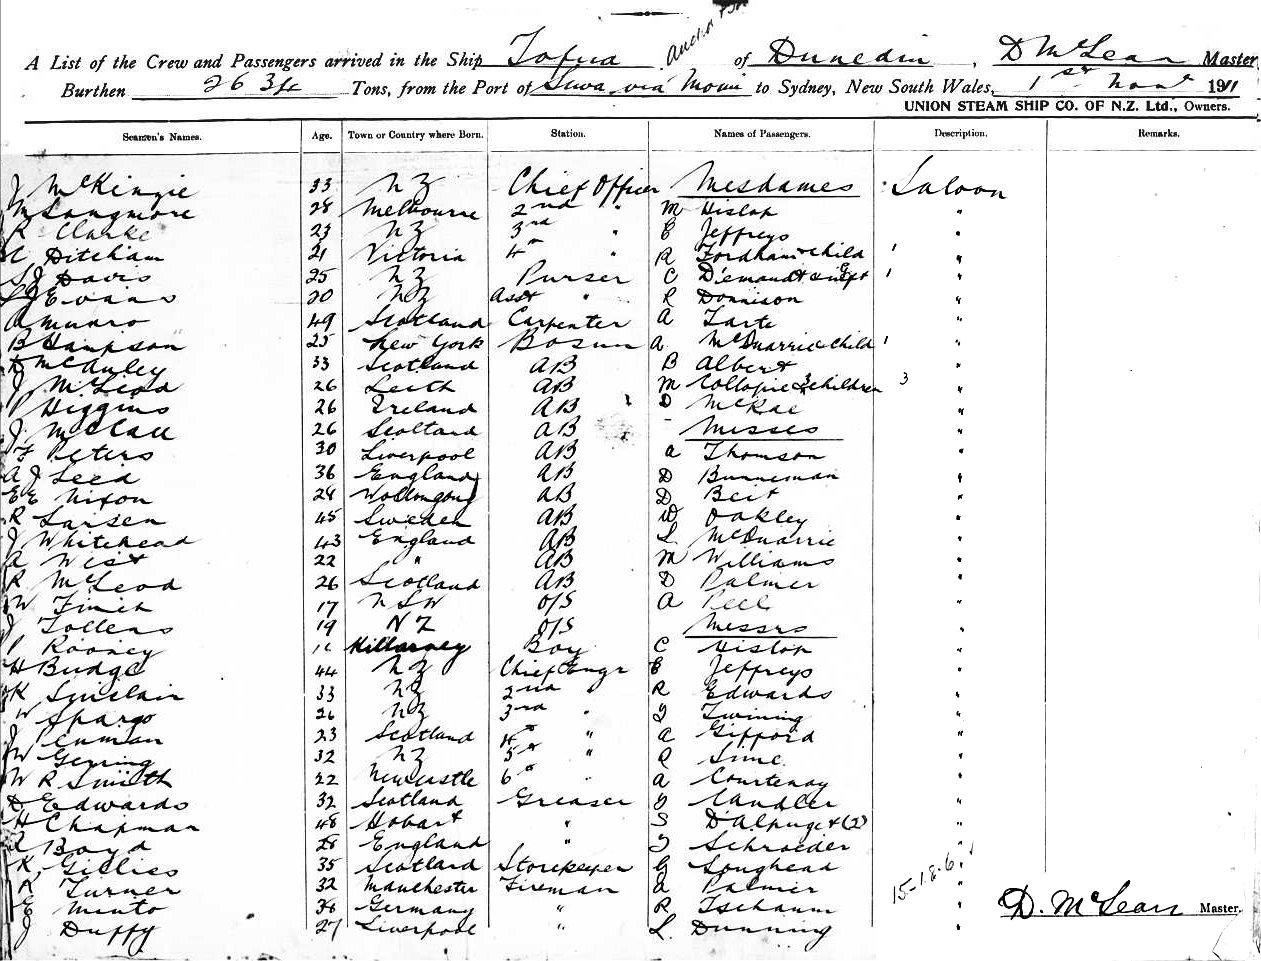 A List of the Crew and Passengers arrived in the Ship Tofua of Dunedin, D McLean Master
Burthen 2634 Tons, from the Port of Suva via to Sydney, New South Wales, 1st Nov 1911
UNION STEAM SHIP CO. OF N.Z. Ltd., Owners.
Seamen's Names. Age. Town or Country where Born. Station. Names of Passengers. Description. Remarks.
J McKinzie 33 NZ Chief Officer Mesdames Saloon
M Langmore 28 Melbourne 2nd " M Hislop "
R Clarke 23 NZ 3rd " E Jeffreys "
Ditcham 21 Victoria 4th " R Fordham & child 1 "
Davis 25 NZ Purser C 1 "
Evans 20 NZ Asst " R Donnison "
A Munro 49 Scotland Carpenter A Tarte "
B Hampson 25 New York Bosun A McQuarrie & Child 1 "
McAuley 33 Scotland AB B Albert "
J McLeod 26 Leith AB M & 3 children 3 "
P Higgins 26 Ireland AB D McRae "
J McCall 26 Scotland AB Misses "
F Peters 30 Liverpool AB A Thomson "
A J Leed 36 England AB D Bunneman "
E E Nixon 28 Wollongong AB D "
R Larsen 45 Sweden AB W Oakley "
J Whitehead 43 England AB L McQuarrie "
A West 22 " AB M Williams "
R McLeod 26 Scotland AB D Palmer "
W Finch 17 NSW O/S A Peel "
J Tollens 19 NZ O/S Messrs "
P Rooney 16 Killarney Boy C Hislop "
H Budge 44 NZ Chief Engr E Jeffreys "
K Sinclair 33 NZ 2nd " R Edwards "
W Spargo 26 NZ 3rd " Twining "
J Penman 23 Scotland 4th " A Gifford "
W Gerring 32 NZ 5th " R Sime "
W R Smith 22 Newcastle 6th " A Courtenay "
D Edwards 32 Scotland Greaser Candler "
H Chapman 48 Hobart " S D'Alpuget (2) "
Boyd 28 England " Schroeder "
K Gillies 35 Scotland Storekeeper G Loughead "
Turner 32 Manchester Fireman A Palmer 15-1.8.6 "
E Minto 36 Germany " R Tschaum "
D. McLean Master.
J Duffy 27 Liverpool " L Dunning "